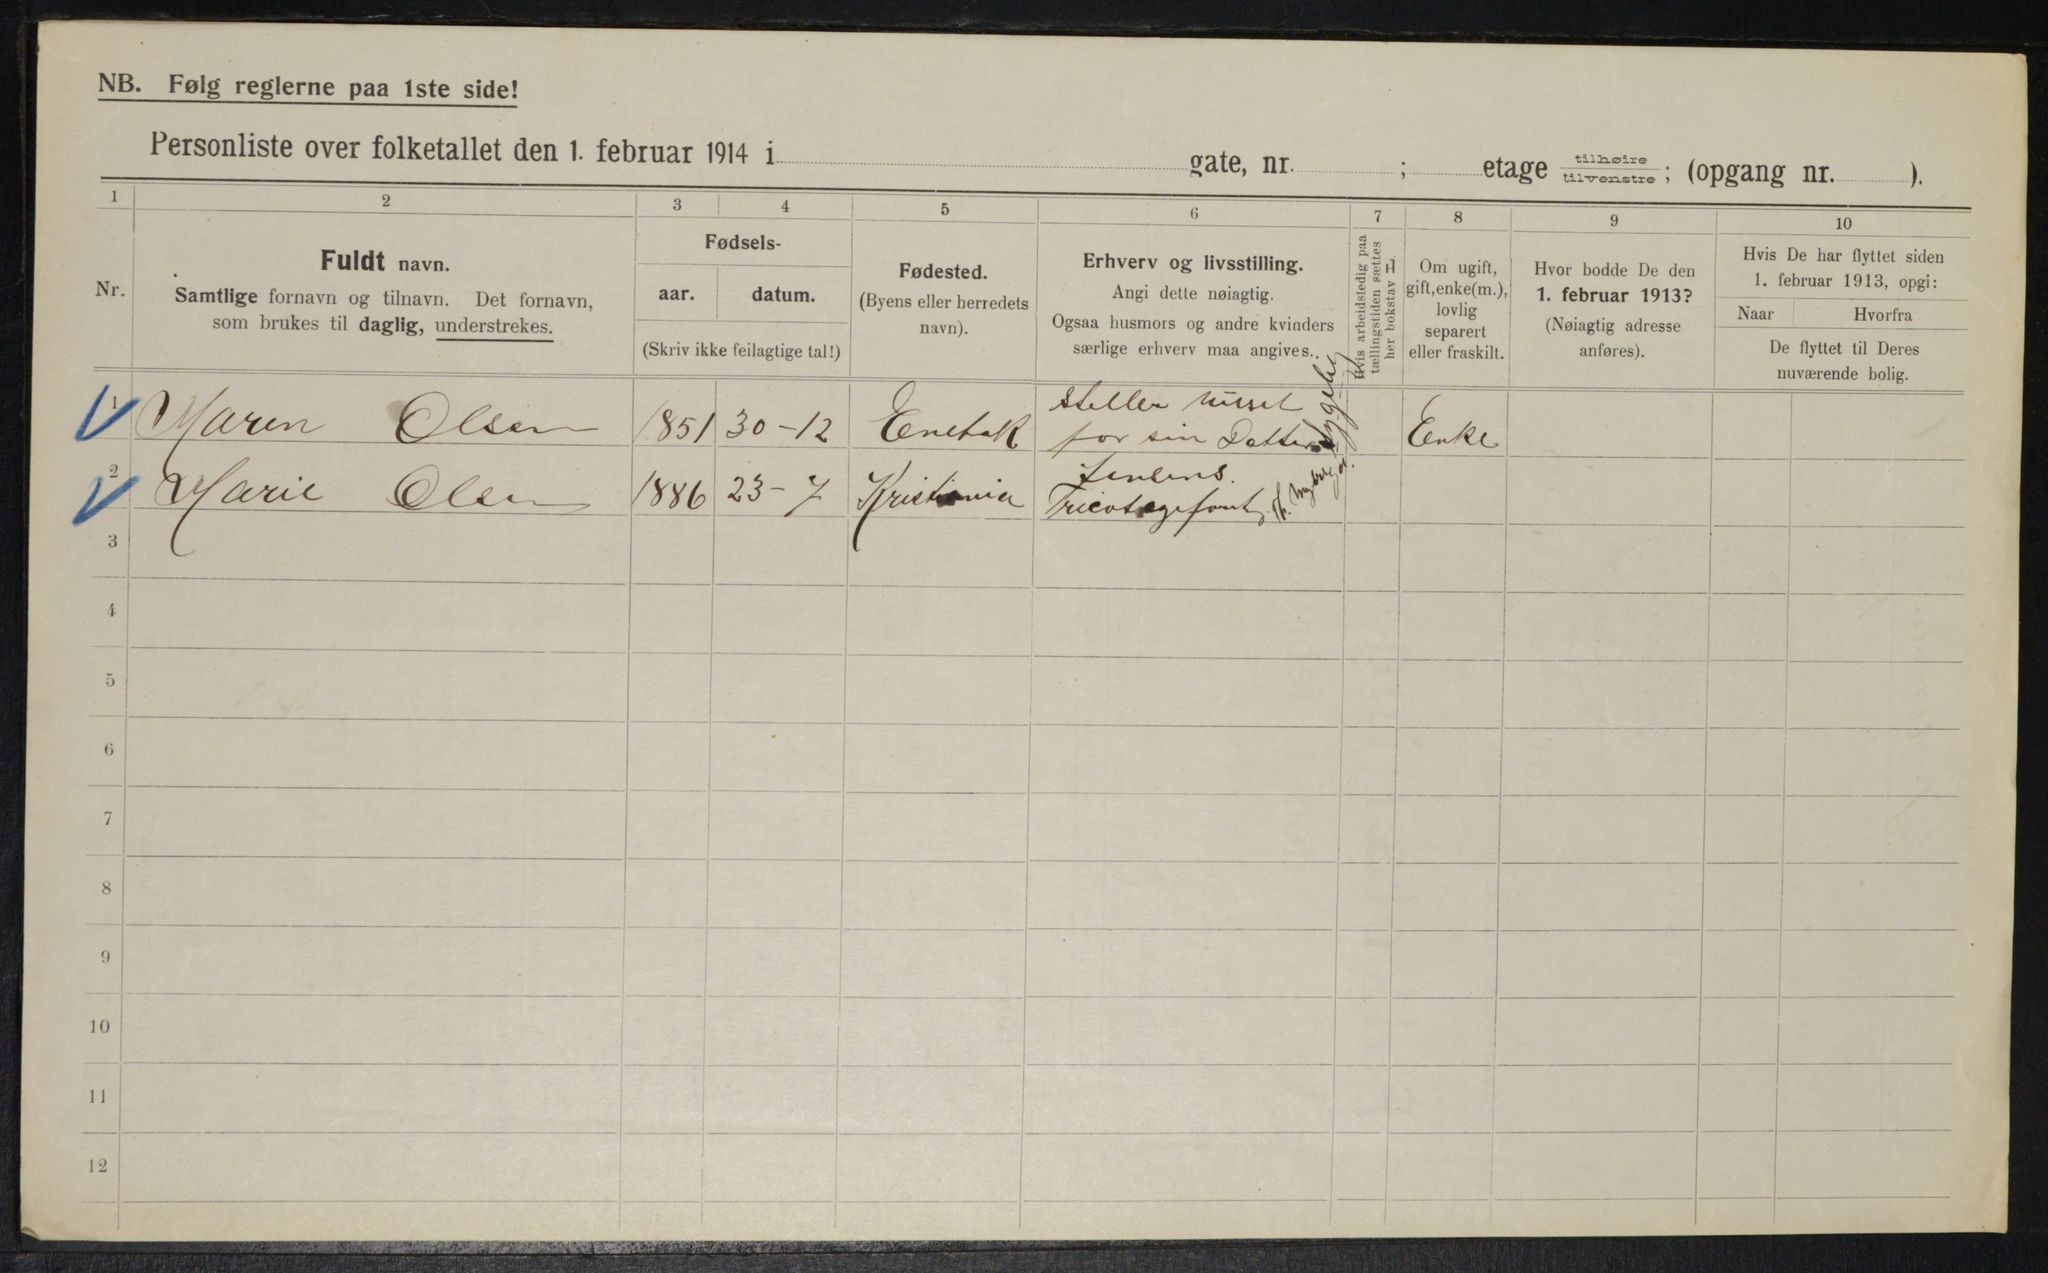 NB. Følg reglerne paa 1ste side!
Personliste over folketallet den 1. februar 1914 i gate, nr. ; etage tilhøire tilvenstre ; (opgang nr. ).
1 2 3 4 5 6 7 8 9 10
Nr.
Fuldt navn.
Samtlige fornavn og tilnavn. Det fornavn,
som brukes til daglig, understrekes.
Fødsels-
aar. datum.
(Skriv ikke feilagtige tal!)
Fødested.
(Byens eller herredets
navn).
Erhverv og livsstilling.
Angi dette nøiagtig.
Ogsaa husmors og andre kvinders
særlige erhverv maa angives.
Hvis arbeidsledig paa
tællingstiden sættes
her bokstav L
Om ugift,
gift, enke(m.),
lovlig
separert
eller fraskilt.
Hvor bodde De den
1. februar 1913?
(Nøiagtig adresse
anføres).
Hvis De har flyttet siden
1. februar 1913, opgi:
Naar Hvorfra
De flyttet til Deres
nuværende bolig.
1 Maren Olsen 1851 30-12 Enebak steller huset
for sin Datter Enke
2 Marie Olsen 1886 23-7 Kristiania Jensens.
3
4
5
6
7
8
9
10
11
12